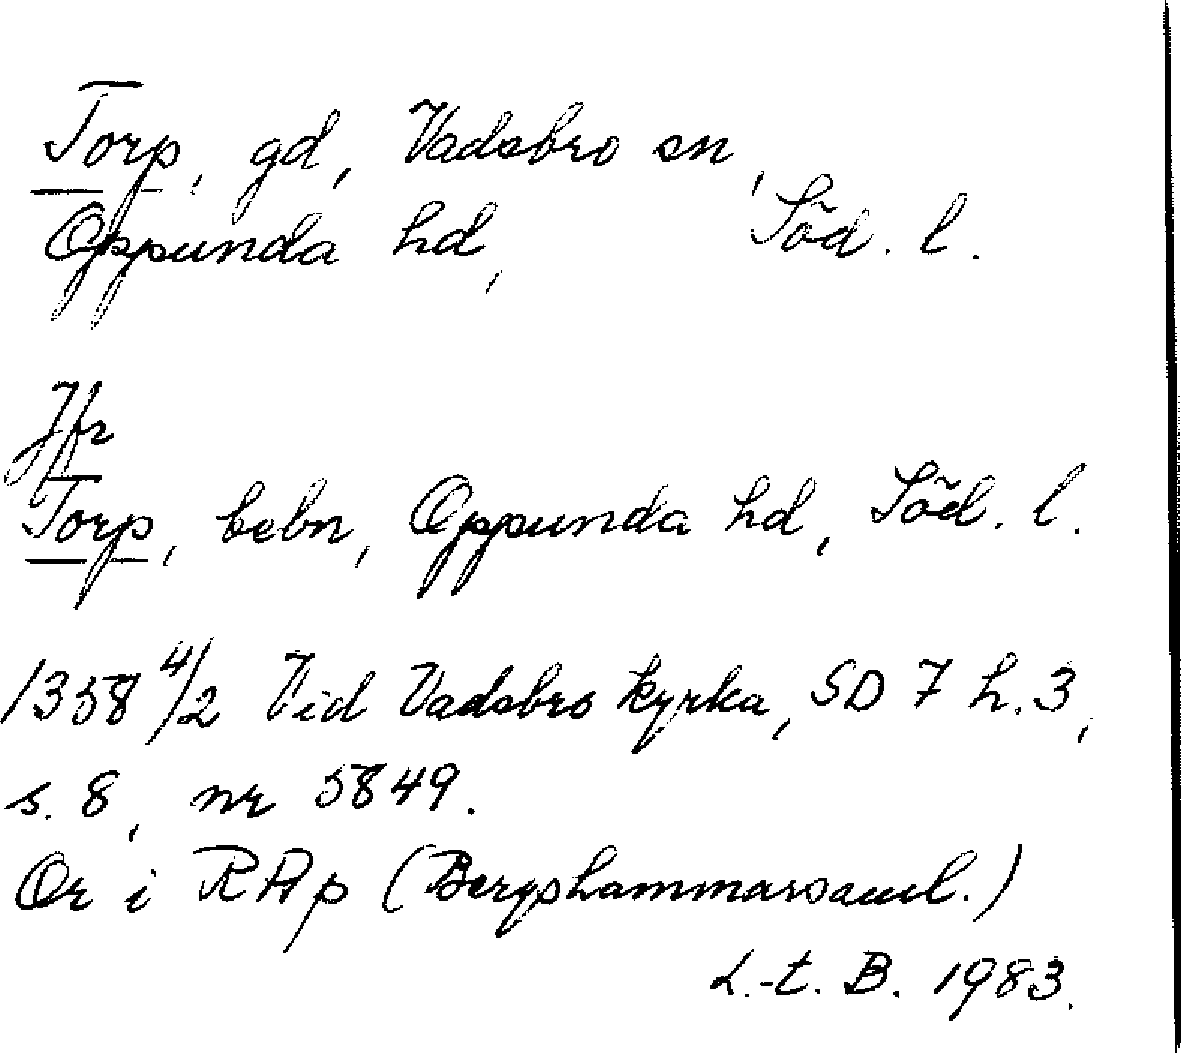 Torp, gd, Vadsbro sn,
Oppunda hd, Söd. l.
Jfr
Torp, bebn, Oppunda hd, Söd. l.
1358 4/2 Vid Vadsbro kyrka, SD 7 h. 3,
s. 8, nr 5849.
Or i RAp (Bergshammarsaml.)
L.-t. B. 1983.